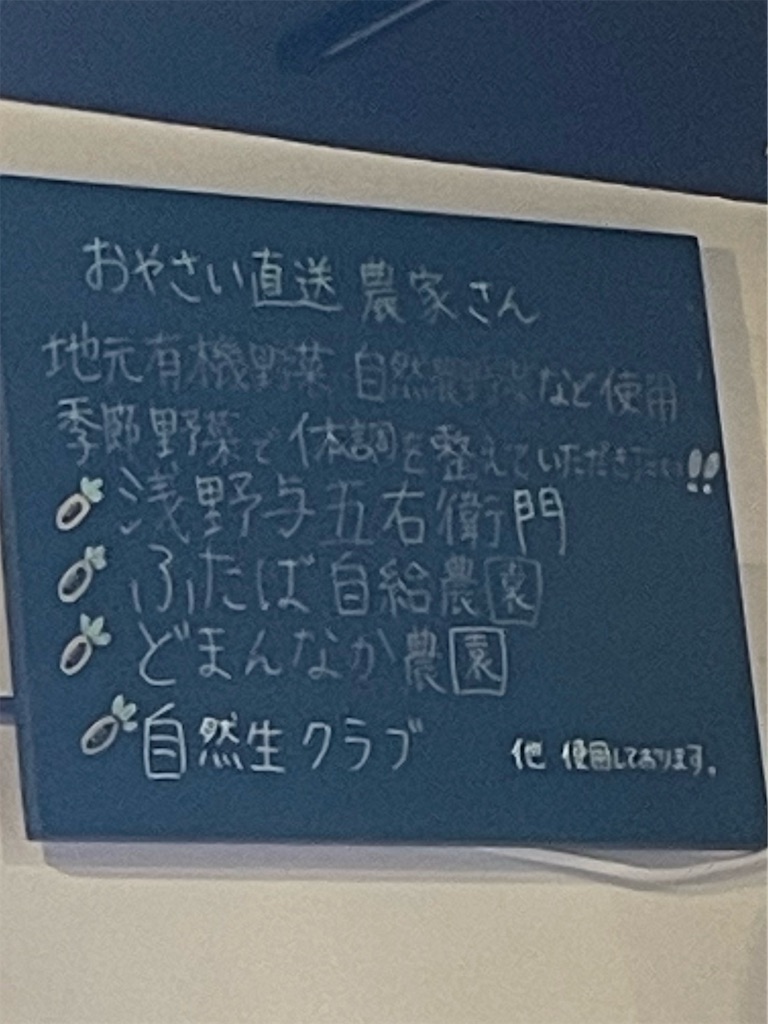 おやさい直送 農家さん
地元有機野菜 自然農野菜など使用
季節野菜で体調を整えていただきたい!!
浅野与五右衛門
ふたば自給農園
どまんなか農園
自然生クラブ
他 使用しております。